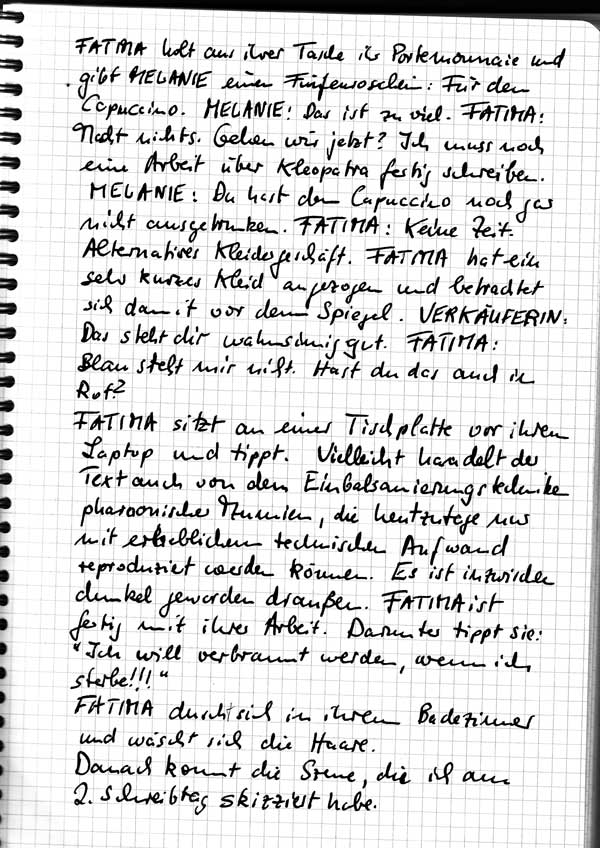 FATIMA holt aus ihrer Tasche ihr Portemonnaie und
gibt MELANIE einen Fünfeuroschein: Für den
Capuccino. MELANIE: Das ist zu viel. FATIMA:
Macht nichts. Gehen wir jetzt? Ich muss noch
eine Arbeit über Kleopatra fertig schreiben.
MELANIE: Du hast den Capuccino noch gar
nicht ausgetrunken. FATIMA: Keine Zeit.
Alternatives Kleidergeschäft. FATIMA hat ein
sehr kurzes Kleid angezogen und betrachtet
sich damit vor dem Spiegel. VERKÄUFERIN:
Das steht dir wahnsinnig gut. FATIMA:
Blau steht mir nicht. Hast du das auch in
Rot?
FATIMA sitzt an einer Tischplatte vor ihrem
Laptop und tippt. Vielleicht handelt der
Text auch von den Einbalsamierungstechniken
pharaonischer Mumien, die heutzutage nur
mit erheblichem technischen Aufwand
reproduziert werden können. Es ist inzwischen
dunkel geworden draußen. FATIMA ist
fertig mit ihrer Arbeit. Darunter tippt sie:
"Ich will verbrannt werden, wenn ich
sterbe!!!"
FATIMA duscht sich in ihrem Badezimmer
und wäscht sich die Haare.
Danach kommt die Szene, die ich am
2. Schreibtag skizziert habe.